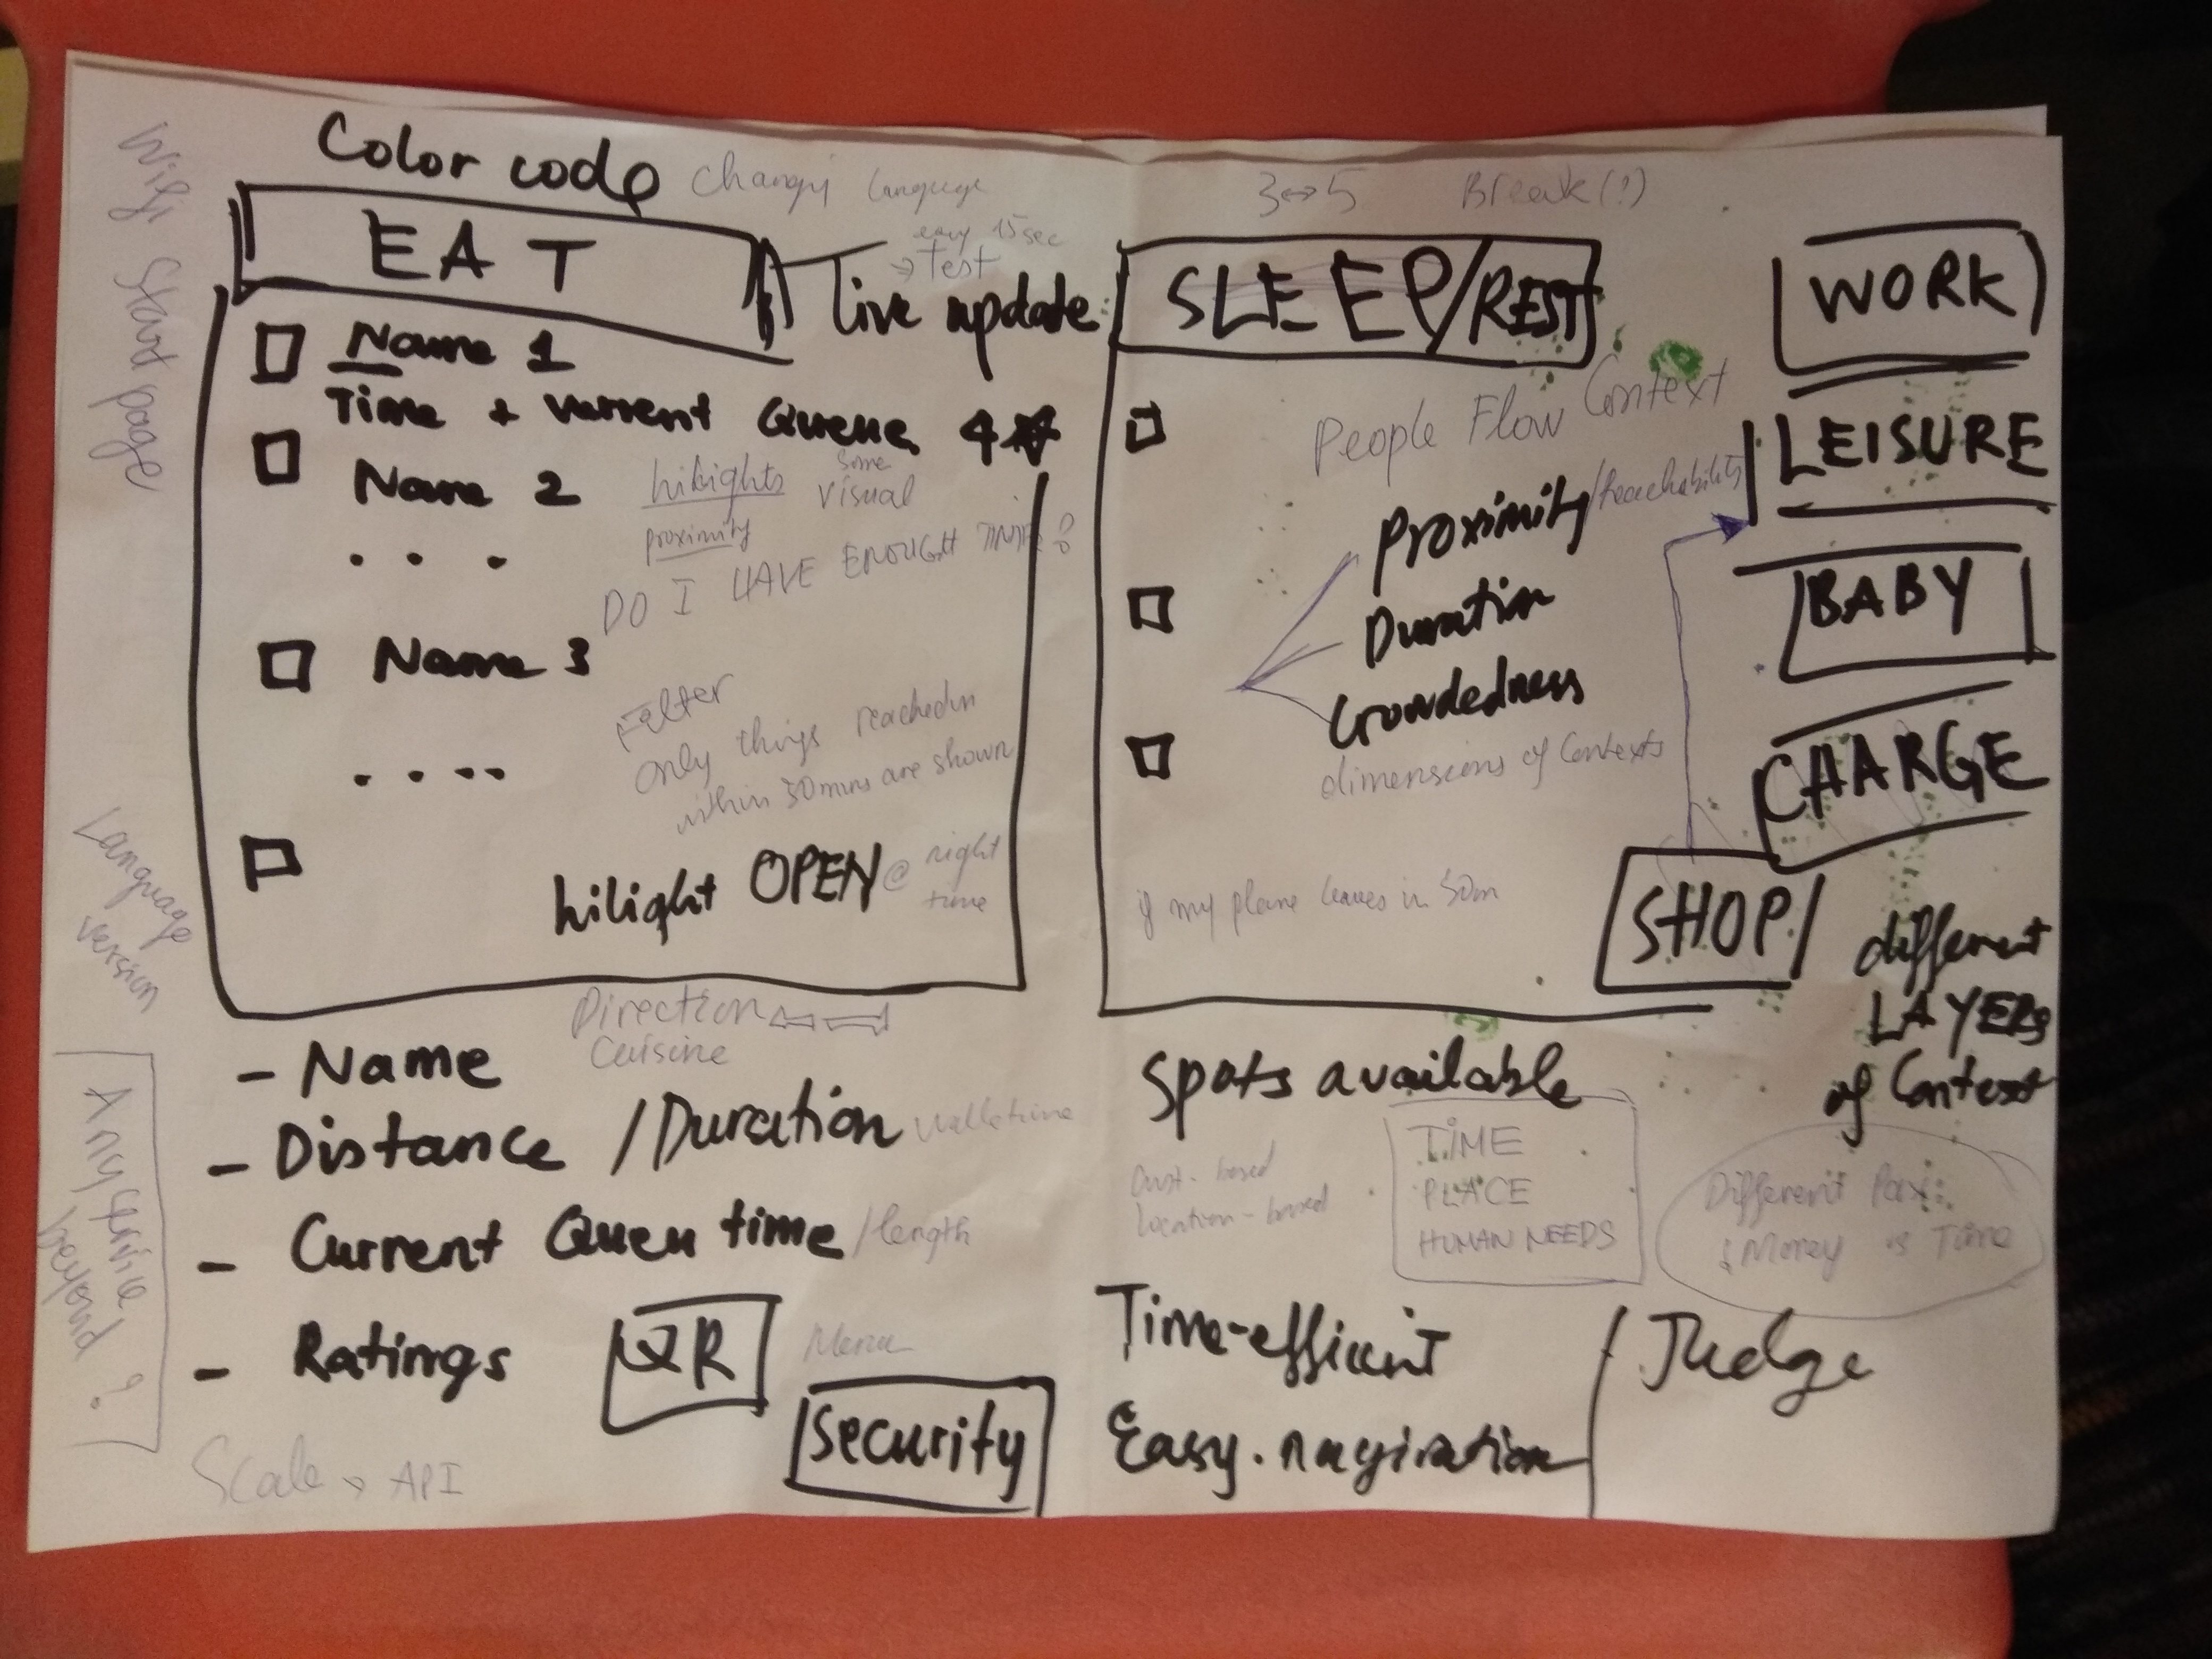 Color code
Changi Language
3↔5 Break(!)
Wifi Start page
EAT
easy 15sec
→ Test
Live update
SLEEP/REST
WORK
Name 1
Time + current Queue 4☆
Name 2
hilights some visual
proximity
. . .
DO I HAVE ENOUGHT TIME?
Name 3
Falter
Only things reached in
within 30mins are shown
. . . .
hilight OPEN @ right
time
People Flow Context
Proximity/reachability
Duration
Crowdedness
dimensions of Contexts
if my plane leaves in 50m
LEISURE
BABY
CHARGE
SHOP
different
LAYERS
of Context
Language
version
Any
beyond ?
Direction
Cuisine
- Name
- Distance /Duration
- Current Queu time/length
- Ratings
QR
Menu
Security
Scale → API
Spots available
based
location-based
TIME
PLACE
HUMAN NEEDS
Different
Money is Time
Time-efficient
Easy.nagivation
Judge